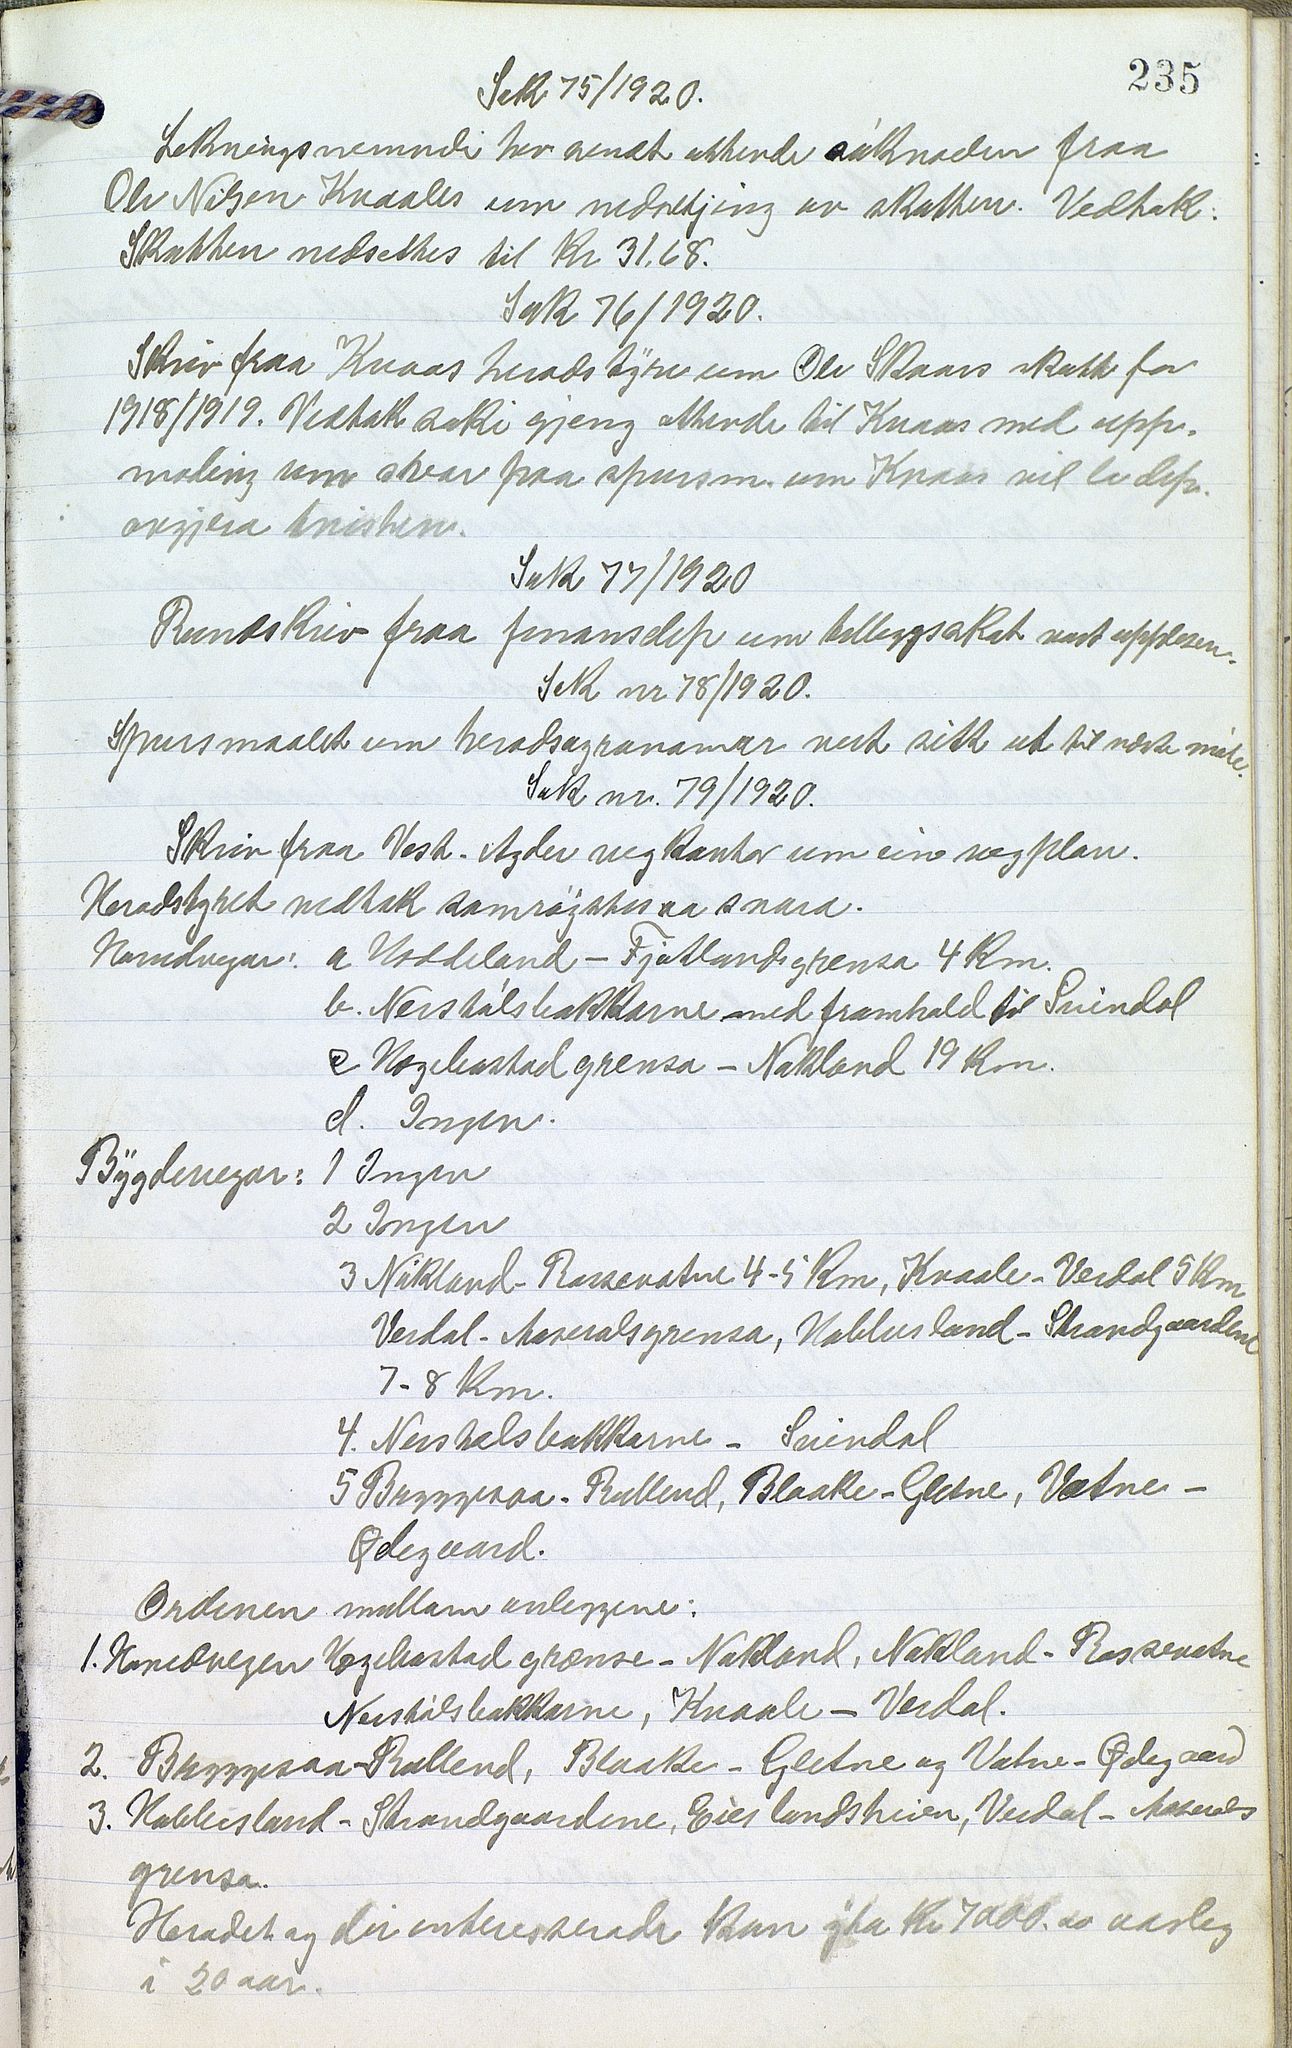 235
Sak 75/1920.
Likningsnemndi hev sendt attende søknaden fraa
Ole Nilsen Kvaale um nedsetjing av skatten. Vedtak:
Skatten nedsettes til Kr 31,68.
Sak 76/1920.
Skriv fraa Kvaas heradstyre um Ole Skaars skatt for
1918/1919. Vedtak saki gjeng attende til Kvaas med upp-
moding um svar fraa spursm. um Kvaas vil la dep.
avgjera tvisten.
Sak 77/1920
Rundskriv fraa finansdep um tilleggsskat vart upplesen.
Sak nr 78/1920.
Spursmaalet um heradsagronomar vert sett ut til næste møte.
Sak nr. 79/1920.
Skriv fraa Vest-Agder vegkontor um ein vegplan.
Heradstyret vedtok samrøystes aa svara.
Hovudvegar: a Hoddeland – Fjotlandsgrensa 4 Km.
b. Neishålsbakkarne med framhald til Svindal
c Hægebostad grensa – Nakland 19 Km.
d. Ingen.
Bygdevegar: 1 Ingen
2 Ingen
3 Nåkland - Rossevatne 4-5 Km, Kvaale - Verdal 5 Km
Verdal - Aaseralsgrensa, Hobbesland - Strandgaardene
7-8 Km.
4. Neishalsbakkarne - Svindal
5 Bryggesaa - Rullend, Blaake - Gletne, Vatne -
Ødegaard.
Ordenen millom anleggene:
1. Hovudvegen Hægebostad grense - Nakland, Nakland - Rossevatne
Neishålsbakkarne, Kvaale – Verdal.
2. Bryggesaa - Rullend, Blaake - Gletne og Vatne - Ødegaard
3. Hobbesland - Strandgaardene, Eieslandsheien, Verdal - Aaserals
grensa.
Heradet og dei interesserade kan yta Kr 7000.00 aarleg
i 20 aar.